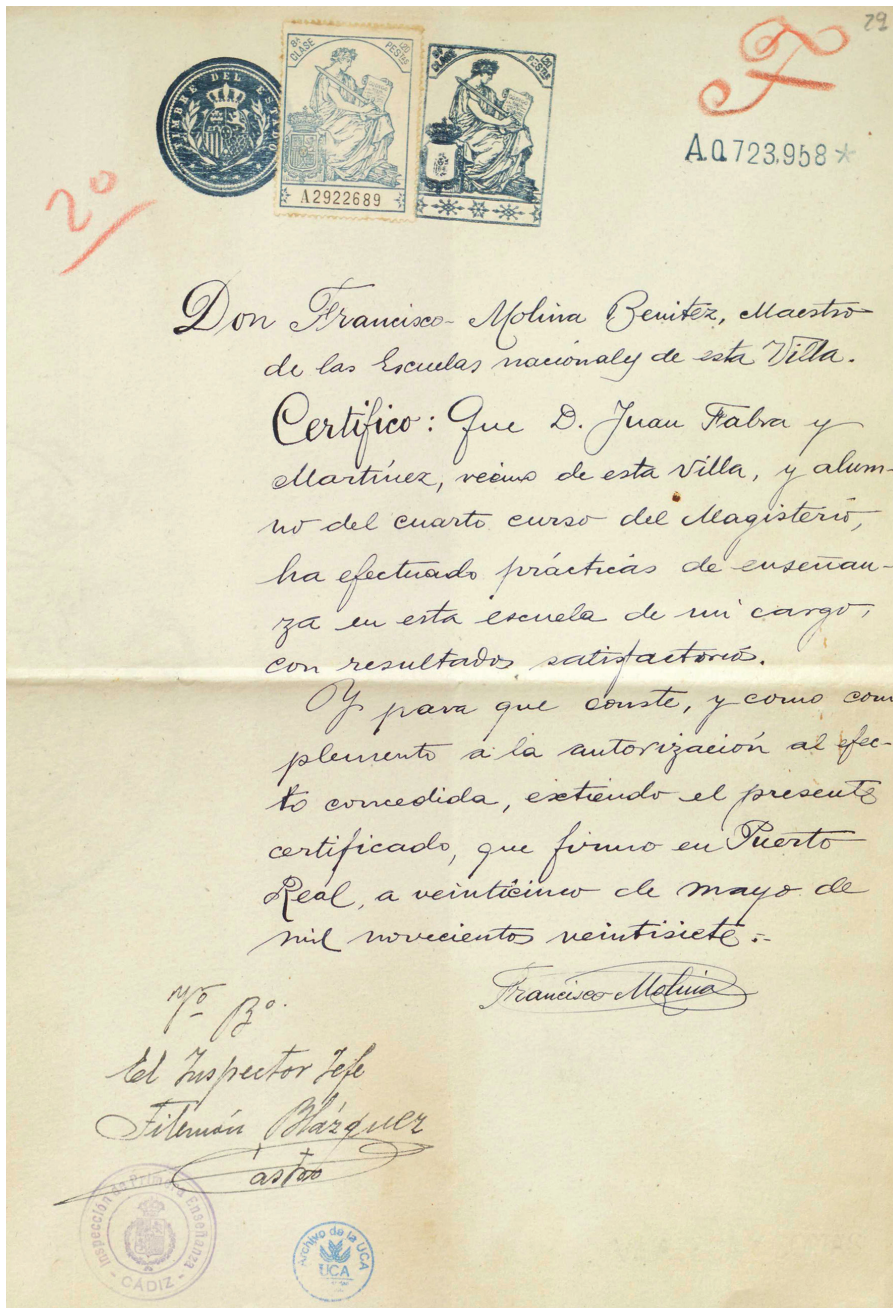 29
F
TIMBRE DEL ESTADO
8ª CLASE
1,20 PESETAS
A2922689
8ª CLASE
1,20 PESETAS
A.0.723.958*
2º
Don Francisco Molina Benitez, Maestro
de las Escuelas nacionales de esta Villa.
Certifico: Que D. Juan Fabra y
Martínez, vecino de esta Villa, y alum-
no del cuarto curso del Magisterio,
ha efectuado prácticas de enseñan-
za en esta escuela de mi cargo,
con resultados satisfactorios.
Y para que conste, y como com
plemento a la autorización al efec-
to concedida, extiendo el presente
certificado, que firmo en Puerto
Real, a veinticinco de mayo de
mil novecientos veintisiete.-
Francisco Molina
Vº Bº.
El Inspector Jefe
Filemón Blázquez
Castro
Inspección de Primera Enseñanza
- CÁDIZ -
Archivo de la UCA
UCA